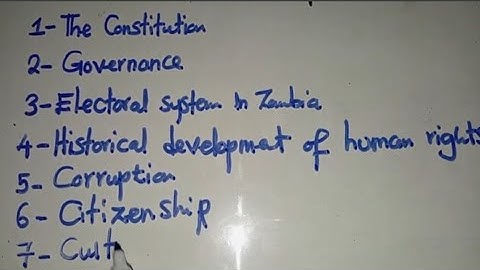 1- The Constitution
2- Governance
3- Electoral system in Zambia
4- Historical development of human rights
5- Corruption
6- Citizenship
7- Cult